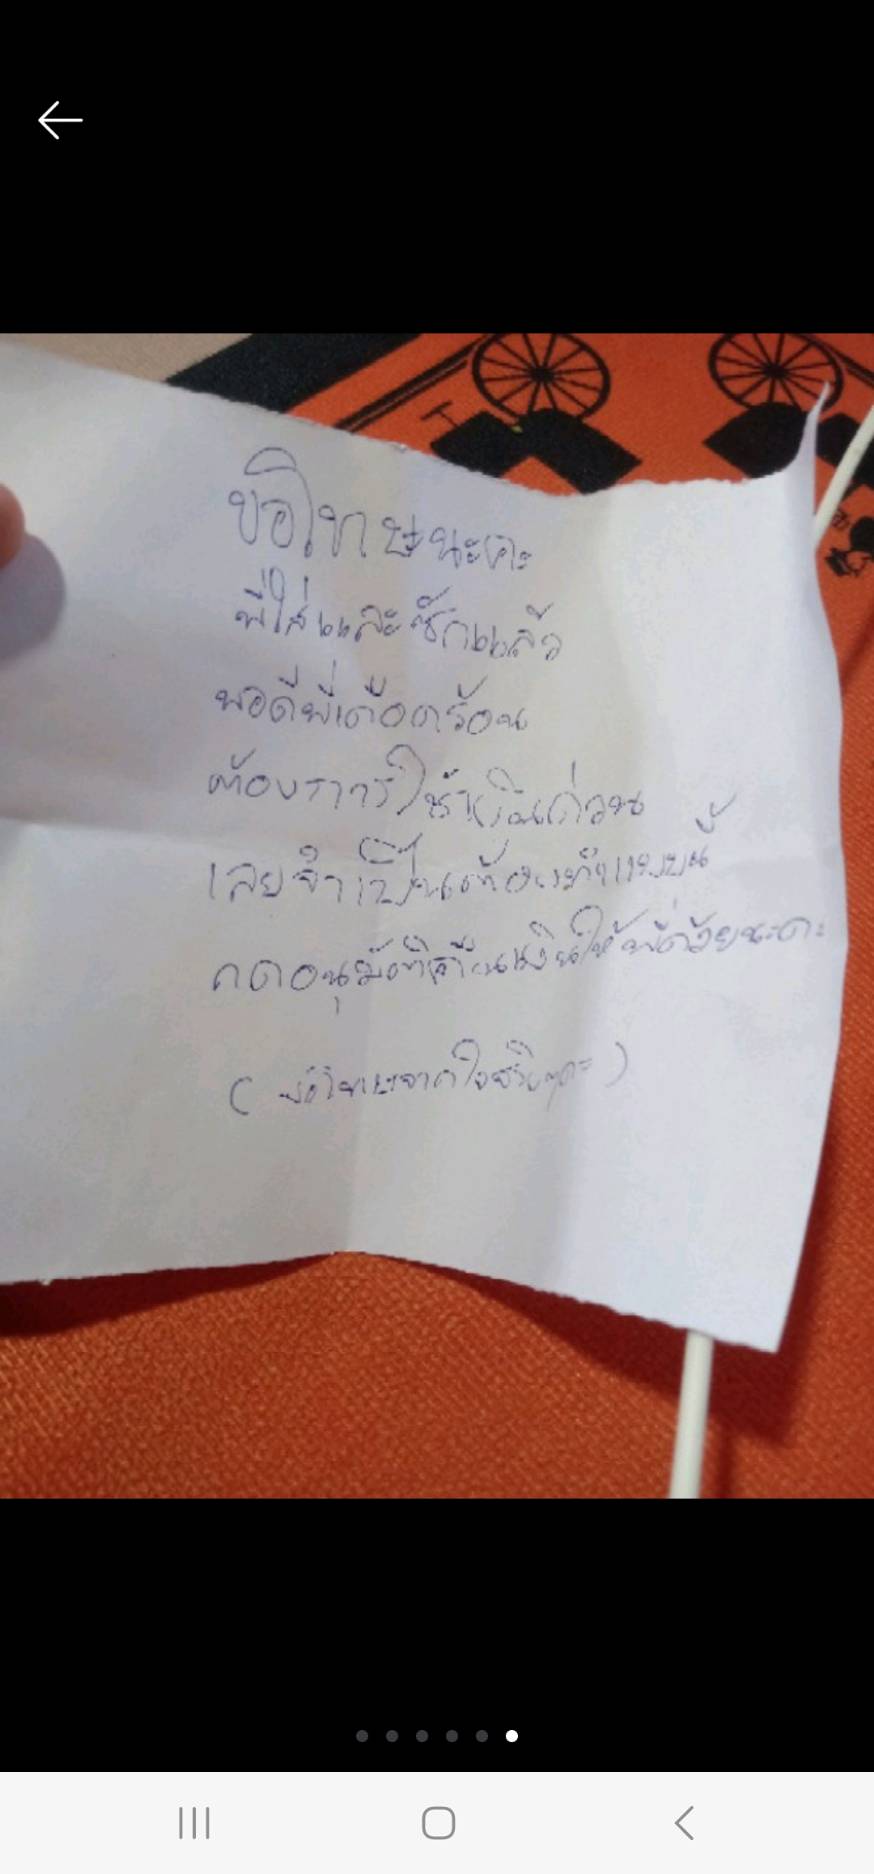 ขอโทษนะคะ
พี่ใส่และซักแล้ว
พอดีพี่เดือดร้อน
ต้องการใช้เงินด่วน
เลยจำเป็นต้องทำแบบนี้
กดอนุมัติคืนเงินให้พี่ด้วยนะคะ
(ขอโทษจากใจจริงๆคะ)